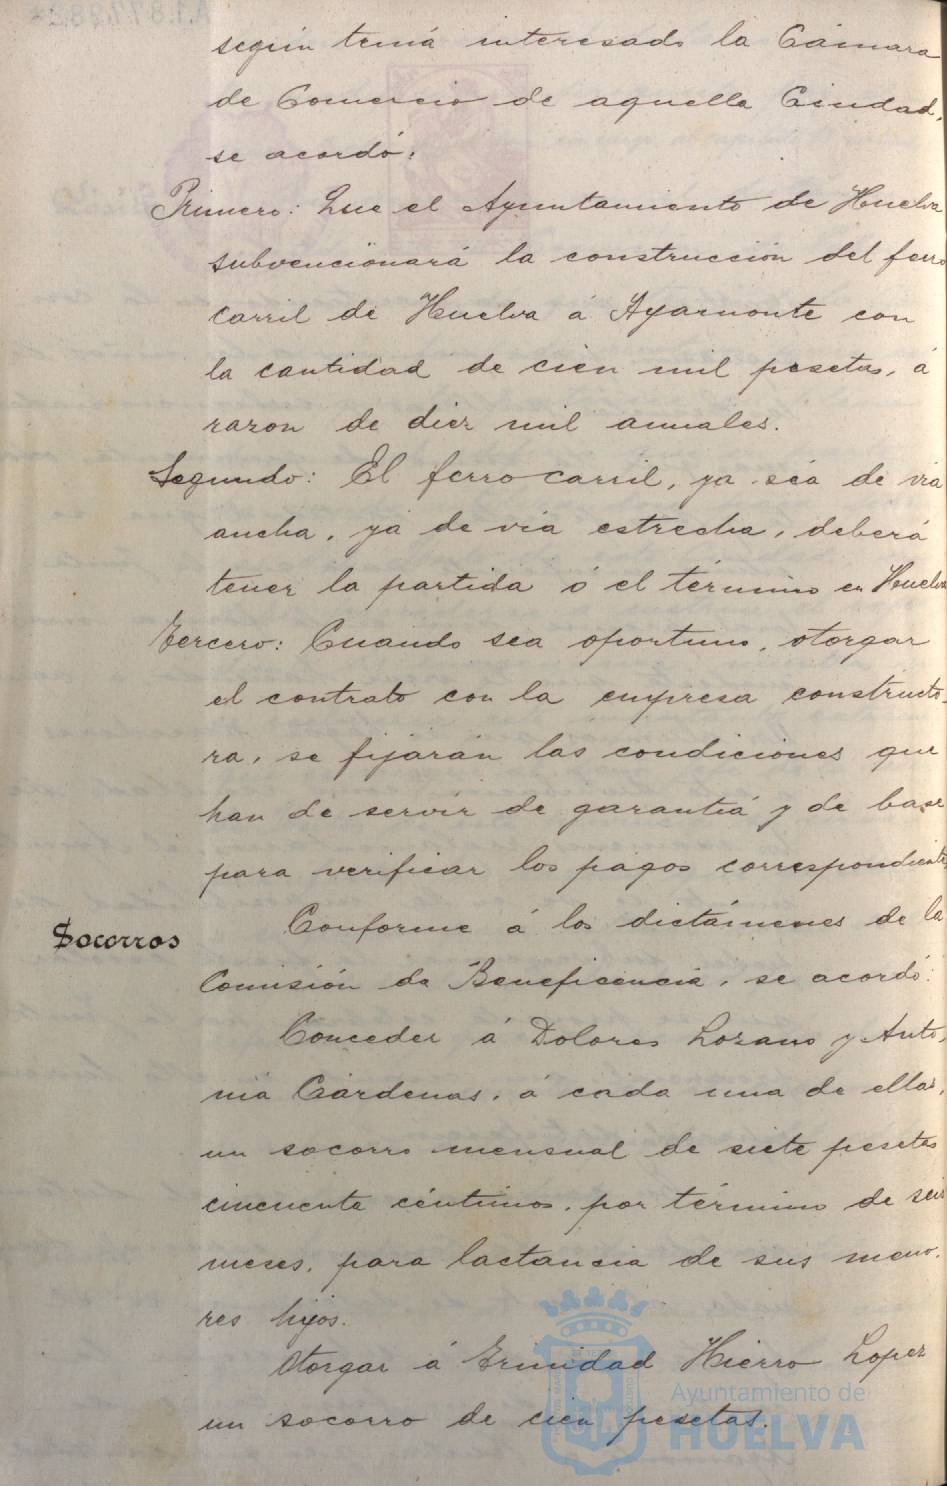 según tenía interesado la Cámara
de Comercio de aquella Ciudad,
se acordó:
Primero: Que el Ayuntamiento de Huelva
subvencionará la construcción del ferro
carril de Huelva á Ayamonte con
la cantidad de cien mil pesetas, á
razon de diez mil anuales.
Segundo: El ferrocarril, ya sea de via
ancha, ya de via estrecha, deberá
tener la partida ó el término en Huelva
Tercero: Cuando sea oportuno, otorgar
el contrato con la empresa constructo-
ra, se fijarán las condiciones que
han de servir de garantía y de base
para verificar los pagos correspondientes
Socorros
Conforme á los dictámenes de la
Comisión de Beneficencia, se acordó:
Conceder á Dolores Lozano y Anto-
nia Cárdenas, á cada una de ellas,
un socorro mensual de siete pesetas
cincuenta céntimos, por término de seis
meses, para lactancia de sus meno-
res hijos.
Otorgar á Trinidad Hierro Lopez
un socorro de cien pesetas.
Ayuntamiento de
HUELVA